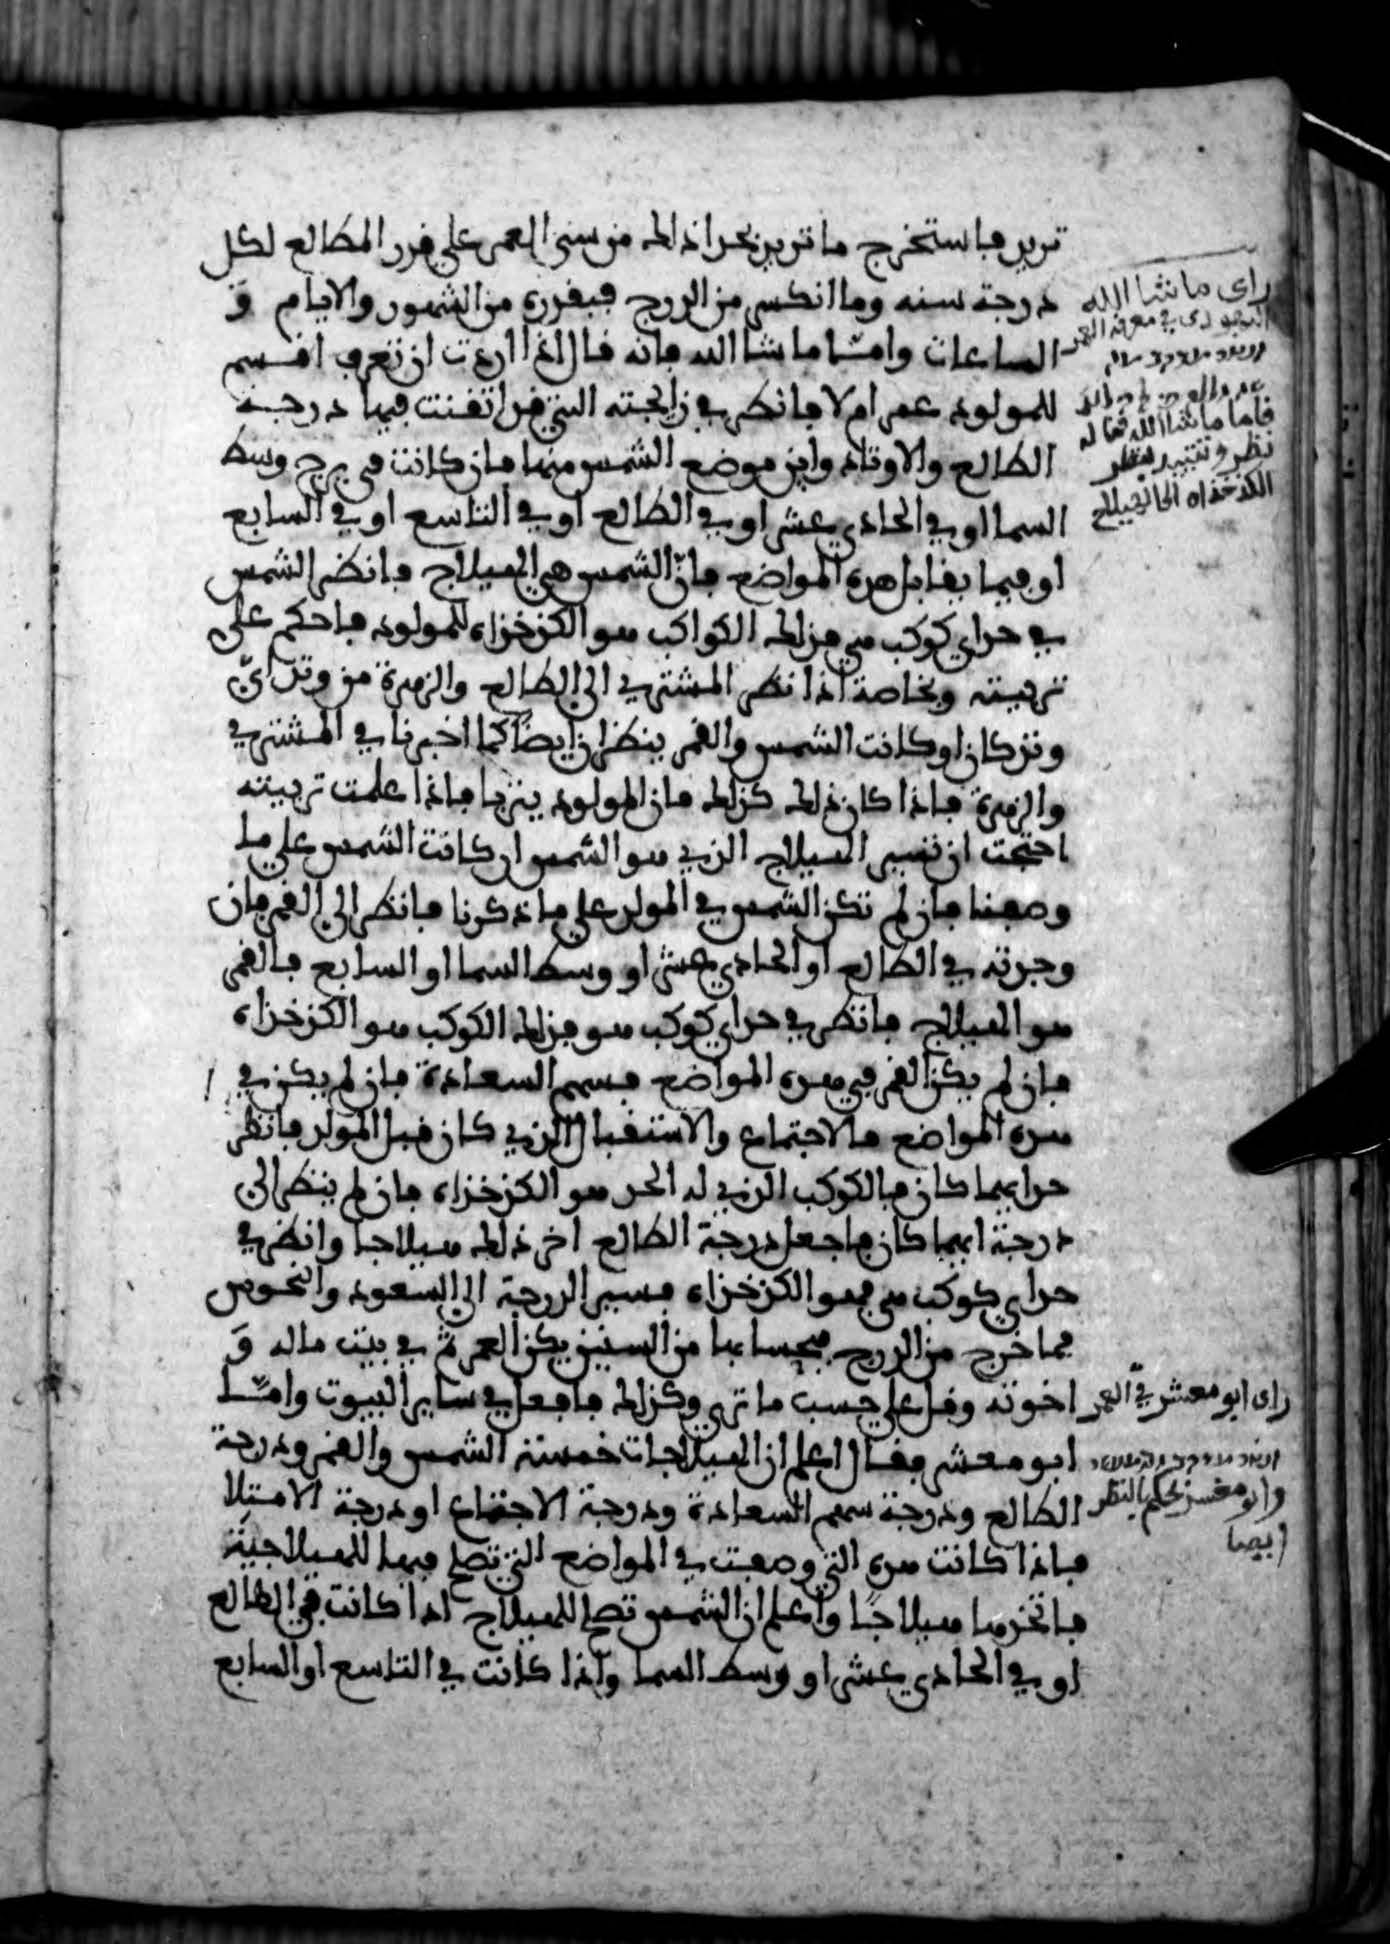 تريد فاستخرج ما تريد بعد ذلك من سني العمر على قدر المطالع لكل
درجة سنه وما انكسر من الدرج فبقدره من الشهور والايام و
الساعات وامّا ما شا الله فانه قال اذا اردت ان تعرف اقسم
للمولود عمر ام لا فانظر في زايجته التي قد اتقنت فيها درجة
الطالع والاوتاد واين موضع الشمس منها فان كانت في برج وسط
السما او في الحادي عشر او في الطالع او في التاسع او في السابع
او فيما يقابل هذه المواضع فانّ الشمس هي الهيلاج فانظر الشمس
في حد اي كوكب هي فذلك الكواكب هو الكدخذاه للمولود فاحكم على
تربيته وبخاصة اذا نظر المشتري الى الطالع والزهرة من وتد ايّ
وتد كان او كانت الشمس والقمر ينظران ايضا كما اخبرنا في المشتري
والزهرة فاذا كان ذلك كذلك فان المولود يتربا فاذا علمت تربيته
احتجت ان تسير الهيلاج الذي هو الشمس ان كانت الشمس على ما
وصفنا فان لم تكن الشمس في المولد على ما ذكرنا فانظر الى القمر فان
وجدته في الطالع او الحادي عشر او وسط السما او السابع فالقمر
هو الهيلاج فانظر في حد اي كوكب هو فذلك الكوكب هو الكدخذاه
فان لم يكن القمر في هذه المواضع فسهم السعادة فان لم يكن في
هذه المواضع فالاجتماع والاستقبال الذي كان قبل المولد فانظر
حد ايهما كان فالكوكب الذي له الحد هو الكدخذاه فان لم ينظر الى
درجة ايهما كان فاجعل درجة الطالع اخر ذلك هيلاجا وانظر في
حد اي كوكب هي فهو الكدخذاه فسير الدرجة الى السعود والنحوس
فما خرج من الدرج فبحسابها من السنين يكن العمر ثم في بيت ماله و
اخوته وقل على حسب ما ترى وكذلك فافعل في ساير البيوت وامّا
ابو معشر فقال اعلم ان الهيلاجات خمسة الشمس والقمر ودرجة
الطالع ودرجة سهم السعادة ودرجة الاجتماع او درجة الامتلا
فاذا كانت هذه التي وصفت في المواضع التي تصلح فيها للهيلاجية
فاتخذها هيلاجًا واعلم ان الشمس تصلح للهيلاج اذا كانت في الطالع
او في الحادي عشر او وسط السما واذا كانت في التاسع او السابع
راى ما شا الله
اليهودى في معرفة العمر
فاما ماشا الله
الكدخذاه الى الهيلاج
راى ابو معشر في العمر
وابو معشر يحكم بالنظر
ايضا